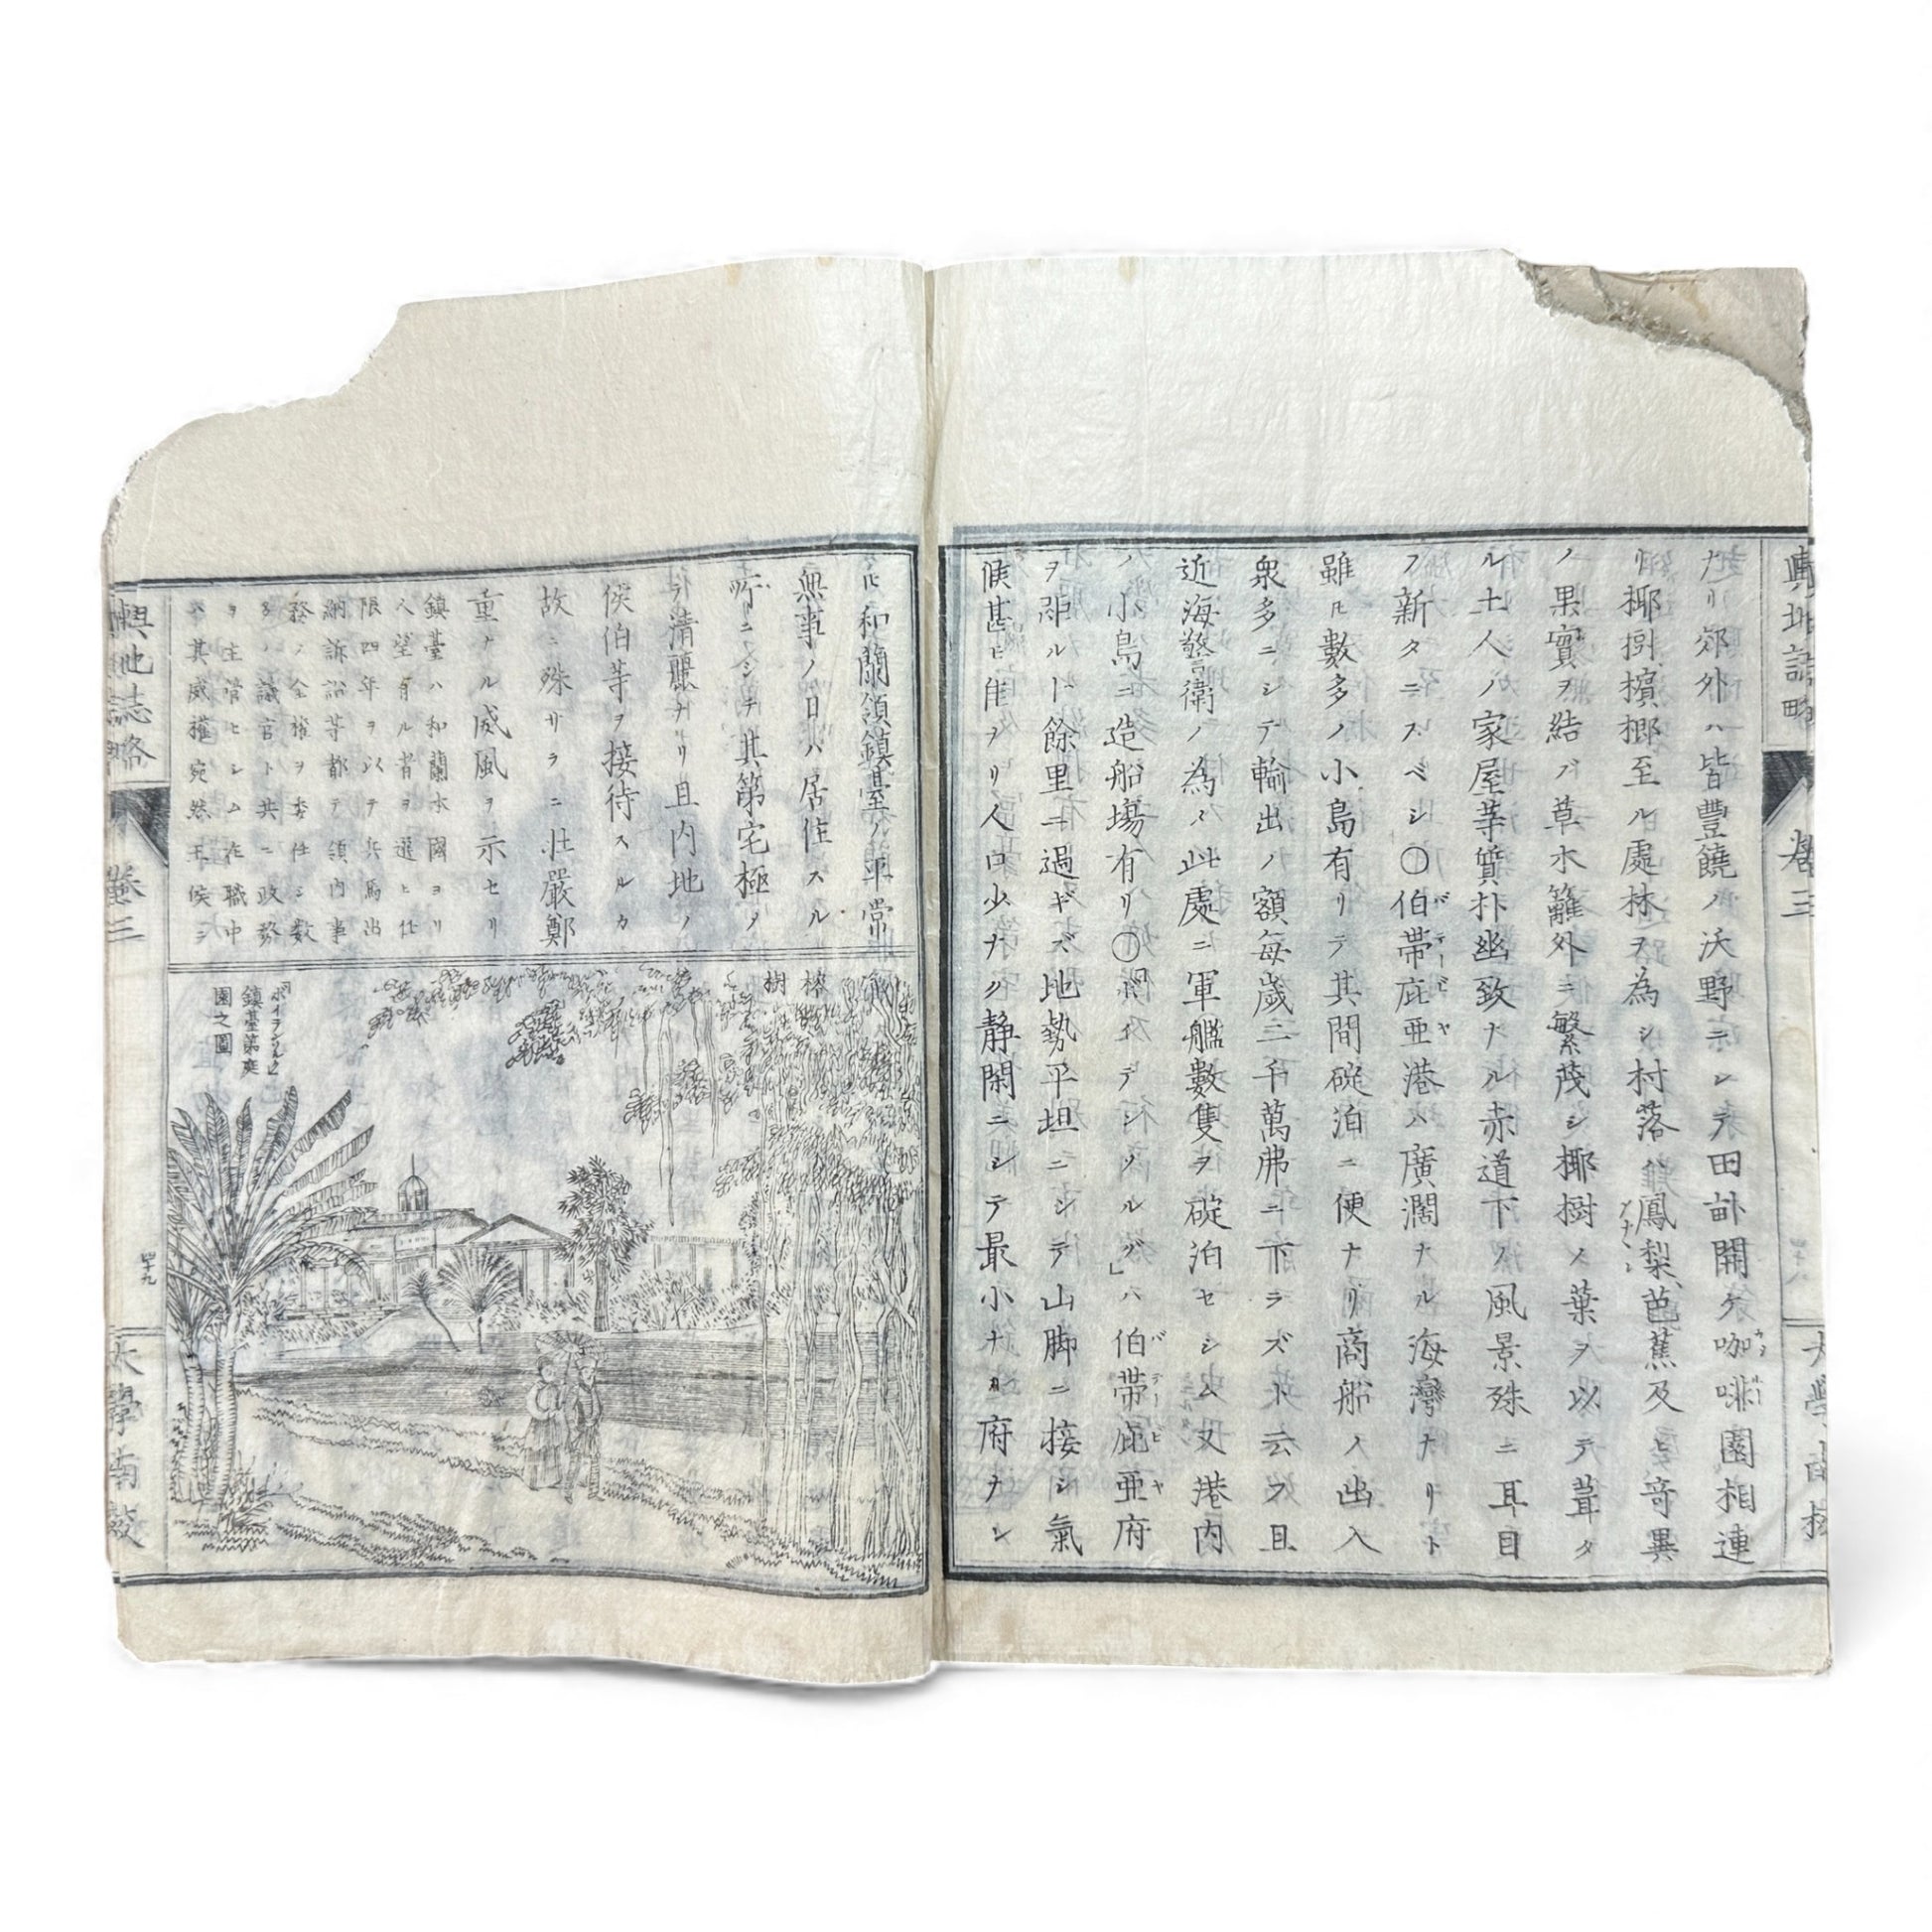 輿地誌略
卷三
大學南校
ナリ郊外ハ皆豐饒ノ沃野ニシテ田畝開ケ咖啡園相連
リ椰樹檳榔至ル處林ヲ為シ村落鳳梨芭蕉及ヒ奇異
ノ果實ヲ結ブ草木籬外ニ繁茂シ椰樹ノ葉ヲ以テ葺タ
ル土人ノ家屋等質朴幽致ナル赤道下ノ風景殊ニ耳目
ヲ新タニスベシ〇伯帶庇亞港ハ廣濶ナル海灣ナリト
雖ㇾ𪜈數多ノ小島有リテ其間碇泊ニ便ナリ商船ノ出入
衆多ニシテ輸出ノ額每歲三千萬弗ニ下ラズト云フ且
近海警衛ノ為メ此處ニ軍艦數隻ヲ碇泊セシム又港内
ノ小島ニ造船場有リ〇ボイテンゾルグ」ハ伯帶庇亞府
ヲ距ルト餘里ニ過ギズ地勢平坦ニシテ山脚ニ接シ氣
候甚ヒ佳ヲリ人口少ナク静閑ニシテ最小ナル府ナレ
𪜈和蘭領鎮臺ノ平常
無事ノ日ハ居住スル
所ニシテ其第宅極メ
テ清麗ナリ且内地ノ
侯伯等ヲ接待スルカ
故ニ殊サラニ壮嚴鄭
重ナル威風ヲ示セリ
鎮臺ハ和蘭本國ヨリ
人望有ル者ヲ選ヒ仕
限四年ヲ以テ兵馬出
納訴訟等都テ領内事
務ノ全權ヲ委任シ數
名ノ議官ト共ニ政務
ヲ主管セシム在職中
ハ其威權宛然王侯ニ
榕樹
ボイテンゾルグ之
鎮臺第庭
園之圖
輿地誌略
卷三
四十九
大學南校